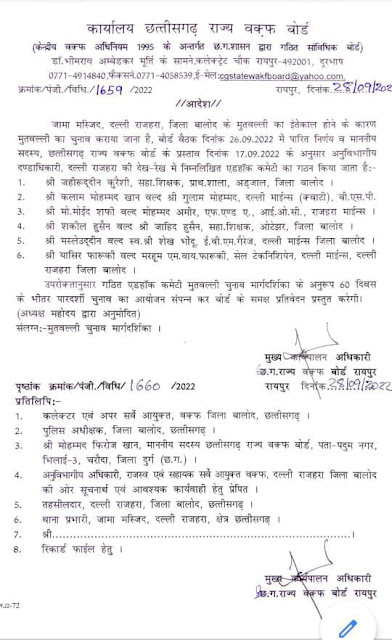 कार्यालय छत्तीसगढ़ राज्य वक्फ बोर्ड
(केन्द्रीय वक्फ अधिनियम 1995 के अन्तर्गत छ.ग.शासन द्वारा गठित सांविधिक बोर्ड)
डॉ.भीमराव अम्बेडकर मूर्ति के सामने,कलेक्ट्रेट चौक रायपुर-492001, दूरभाष
0771-4914840,फैक्सनं.0771-4058539,ई-मेल:cgstatewakfboard@yahoo.com,
क्रमांक/पंजी./विधि./1659 /2022 रायपुर, दिनांक.28/09/2022
//आदेश//
जामा मस्जिद, दल्ली राजहरा, जिला बालोद के मुतवल्ली का इंतेकाल होने के कारण
मुतवल्ली का चुनाव कराया जाना है, बोर्ड बैठक दिनांक 26.09.2022 में पारित निर्णय व माननीय
सदस्य, छत्तीसगढ़ राज्य वक्फ बोर्ड के प्रस्ताव दिनांक 17.09.2022 के अनुसार अनुविभागीय
दण्डाधिकारी, दल्ली राजहरा की देख-रेख में निम्नलिखित एडहॉक कमेटी का गठन किया जाता है:-
1. श्री जहीरूद्दीन कुरैशी, सहा.शिक्षक, प्राथ.शाला, अड़जाल, जिला बालोद ।
2. श्री कलाम मोहम्मद खान वल्द श्री गुलाम मोहम्मद, दल्ली माईन्स (क्वाटी), बी.एस.पी.
3. श्री मो.मोईद शफी वल्द मोहम्मद अमीर, एफ.एण्ड ए., आई.ओ.सी., राजहरा माईन्स ।
4. श्री शकील हुसैन वल्द श्री जाहिद हुसैन, सहा.शिक्षक, ओटेझर, जिला बालोद ।
5. श्री मस्लेउद्दीन वल्द स्व.श्री शेख भोंदू, ई.बी.एम.गैरेज, दल्ली माईन्स जिला बालोद ।
6. श्री यासिर फारूकी वल्द मरहूम एम.वाय.फारूकी, सेल टेकनिशियन, दल्ली माईन्स, दल्ली
राजहरा जिला बालोद ।
उपरोक्तानुसार गठित एडहॉक कमेटी मुतवल्ली चुनाव मार्गदर्शिका के अनुरूप 60 दिवस
के भीतर पारदर्शी चुनाव का आयोजन संपन्न कर बोर्ड के समक्ष प्रतिवेदन प्रस्तुत करेगी।
(अध्यक्ष महोदय द्वारा अनुमोदित)
संलग्न:-मुतवल्ली चुनाव मार्गदर्शिका ।
मुख्य कार्यपालन अधिकारी
छ.ग.राज्य वक्फ बोर्ड रायपुर
पृष्ठांक क्रमांक/पंजी./विधि/1660 /2022 रायपुर दिनांक.28/09/2022
प्रतिलिपि:-
1. कलेक्टर एवं अपर सर्वे आयुक्त, वक्फ जिला बालोद, छत्तीसगढ़ ।
2. पुलिस अधीक्षक, जिला बालोद, छत्तीसगढ़ ।
3. श्री मोहम्मद फिरोज खान, माननीय सदस्य छत्तीसगढ़ राज्य वक्फ बोर्ड, पता-पदुम नगर,
भिलाई-3, चरौदा, जिला दुर्ग (छ.ग.) ।
4. अनुविभागीय अधिकारी, राजस्व एवं सहायक सर्वे आयुक्त वक्फ, दल्ली राजहरा जिला बालोद
की ओर सूचनार्थ एवं आवश्यक कार्यवाही हेतु प्रेषित ।
5. तहसीलदार, दल्ली राजहरा, जिला बालोद, छत्तीसगढ़ ।
6. थाना प्रभारी, जामा मस्जिद, दल्ली राजहरा, क्षेत्र छत्तीसगढ़ ।
7. श्री.......................................................।
8. रिकार्ड फाईल हेतु ।
मुख्य कार्यपालन अधिकारी
छ.ग.राज्य वक्फ बोर्ड रायपुर